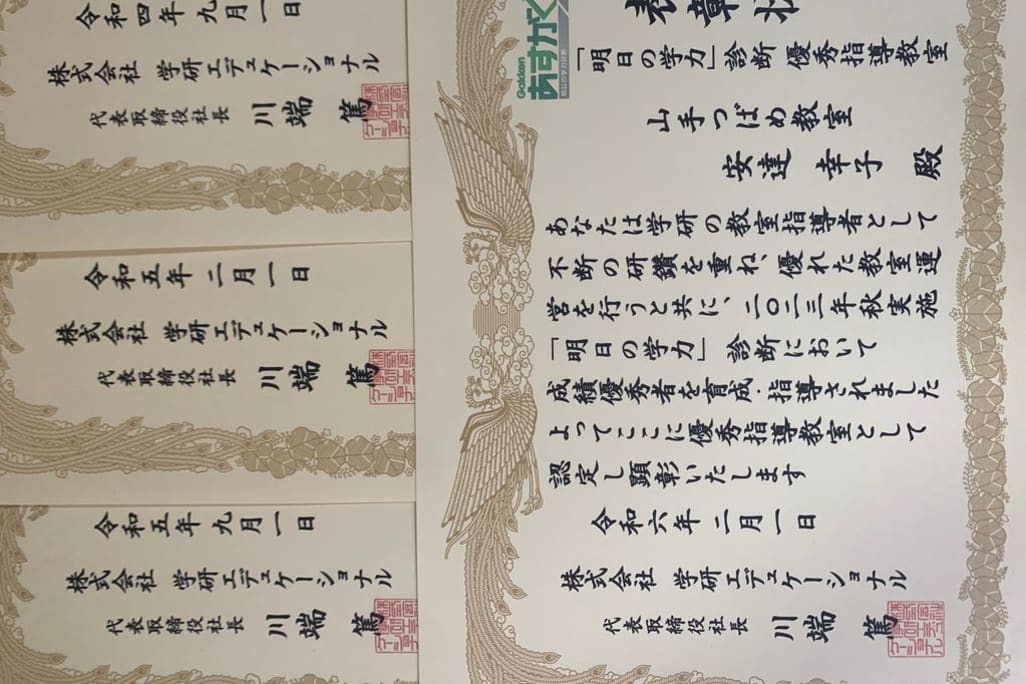 令和四年九月一日
株式会社 学研エデュケーショナル
代表取締役社長 川端 篤
令和五年二月一日
株式会社 学研エデュケーショナル
代表取締役社長 川端 篤
令和五年九月一日
株式会社 学研エデュケーショナル
代表取締役社長 川端 篤
Gakken
あすがく
明日の学力診断
表彰状
「明日の学力」診断 優秀指導教室
山手つばめ教室
安達 幸子 殿
あなたは学研の教室指導者として
不断の研鑽を重ね、優れた教室運
営を行うと共に、二〇二三年秋実施
「明日の学力」 診断において
成績優秀者を育成・指導されました
よってここに優秀指導教室として
認定し顕彰いたします
令和六年 二月一日
株式会社 学研エデュケーショナル
代表取締役社長 川端 篤